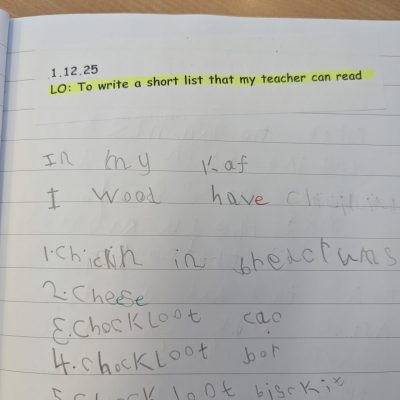 1.12.25
LO: To write a short list that my teacher can read
In my Kaf
I wood have
1. Chickin in breacrums
2. Cheese
3. Chockloot cac
4. Chockloot bor
5. Chockloot bisckit